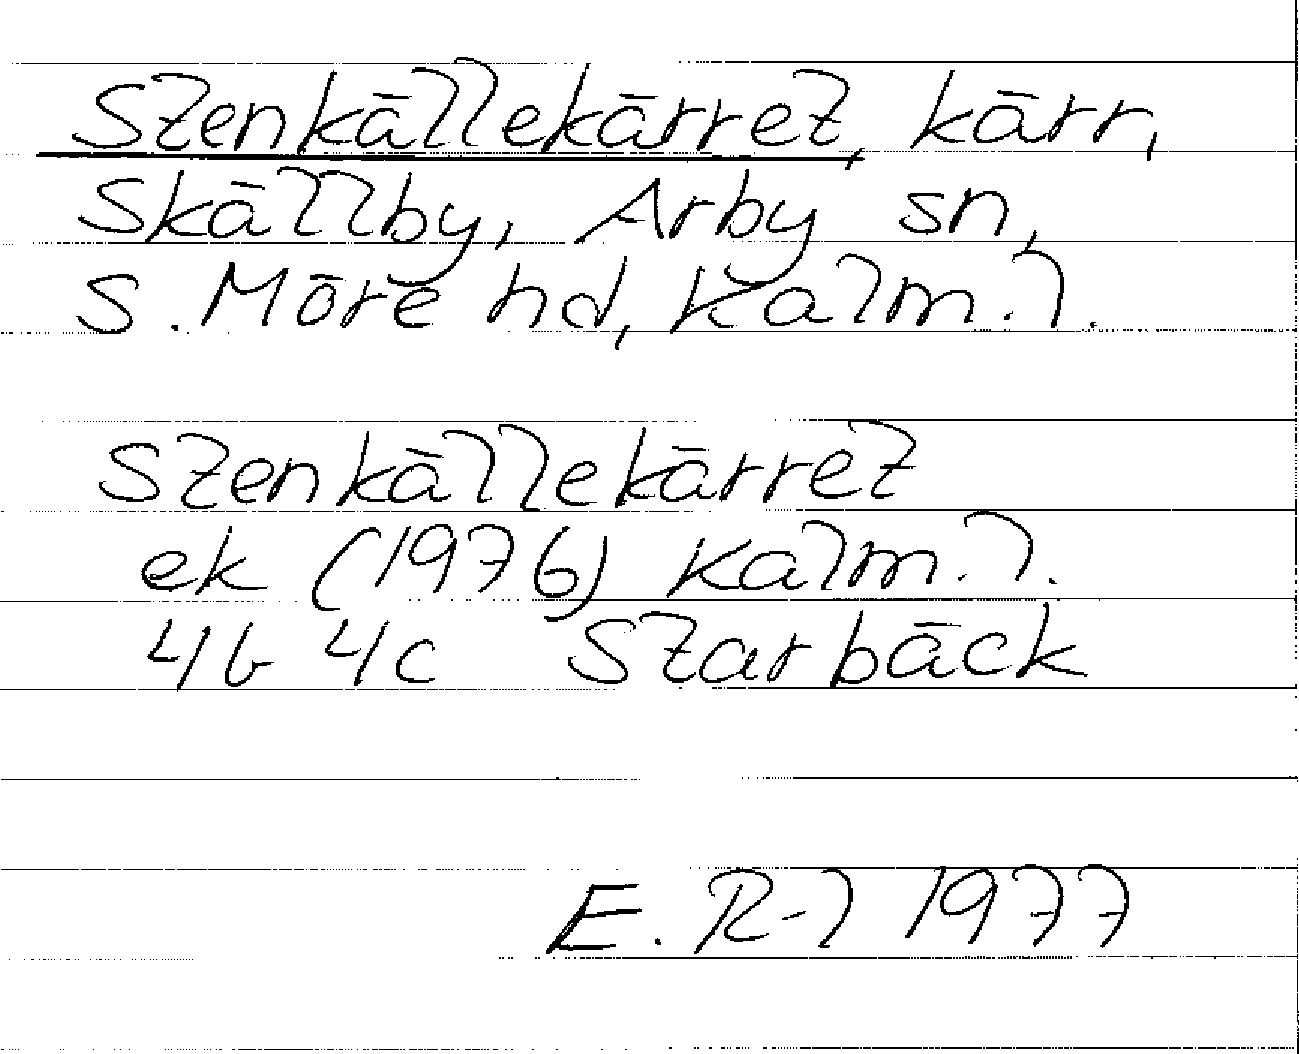 Stenkällekärret, kärr,
Skällby, Arby sn,
S. Möre hd, Kalm. l.
Stenkällekärret
ek (1976) Kalm. l.
4b 4c Starbäck
E. R-l 1977